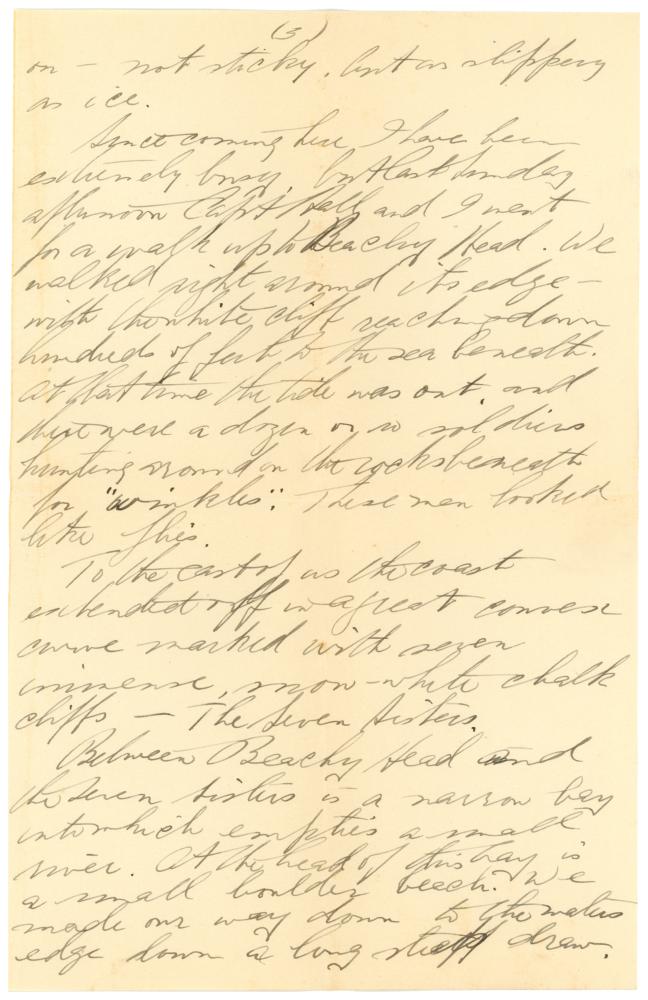 (3)
on – not sticky, but as slippery
as ice.
Since coming here I have been
extremely busy, but last Sunday
afternoon Capt Hall and I went
for a walk up to Beachy Head. We
walked right around its edge –
with the white cliff reaching down
hundreds of feet to the sea beneath.
At that time the tide was out, and
there were a dozen or so soldiers
hunting around on the rocks beneath
for "winkles". These men looked
like flies.
To the east of us the coast
extended off in a great convex
curve marked with seven
immense, snow-white chalk
cliffs – The Seven Sisters.
Between Beachy Head and
the Seven Sisters is a narrow bay
into which empties a small
river. At the head of this bay is
a small boulder beach. We
made our way down to the waters
edge down a long steep draw.